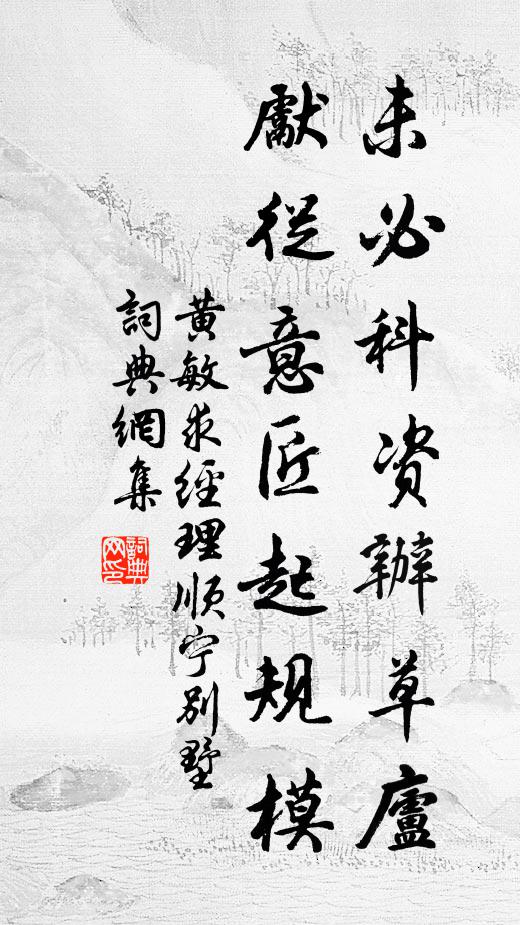 未必科资辦草廬
獻從意匠起规模
黄敏求經理順宁别墅
詞典網集
詞典网印